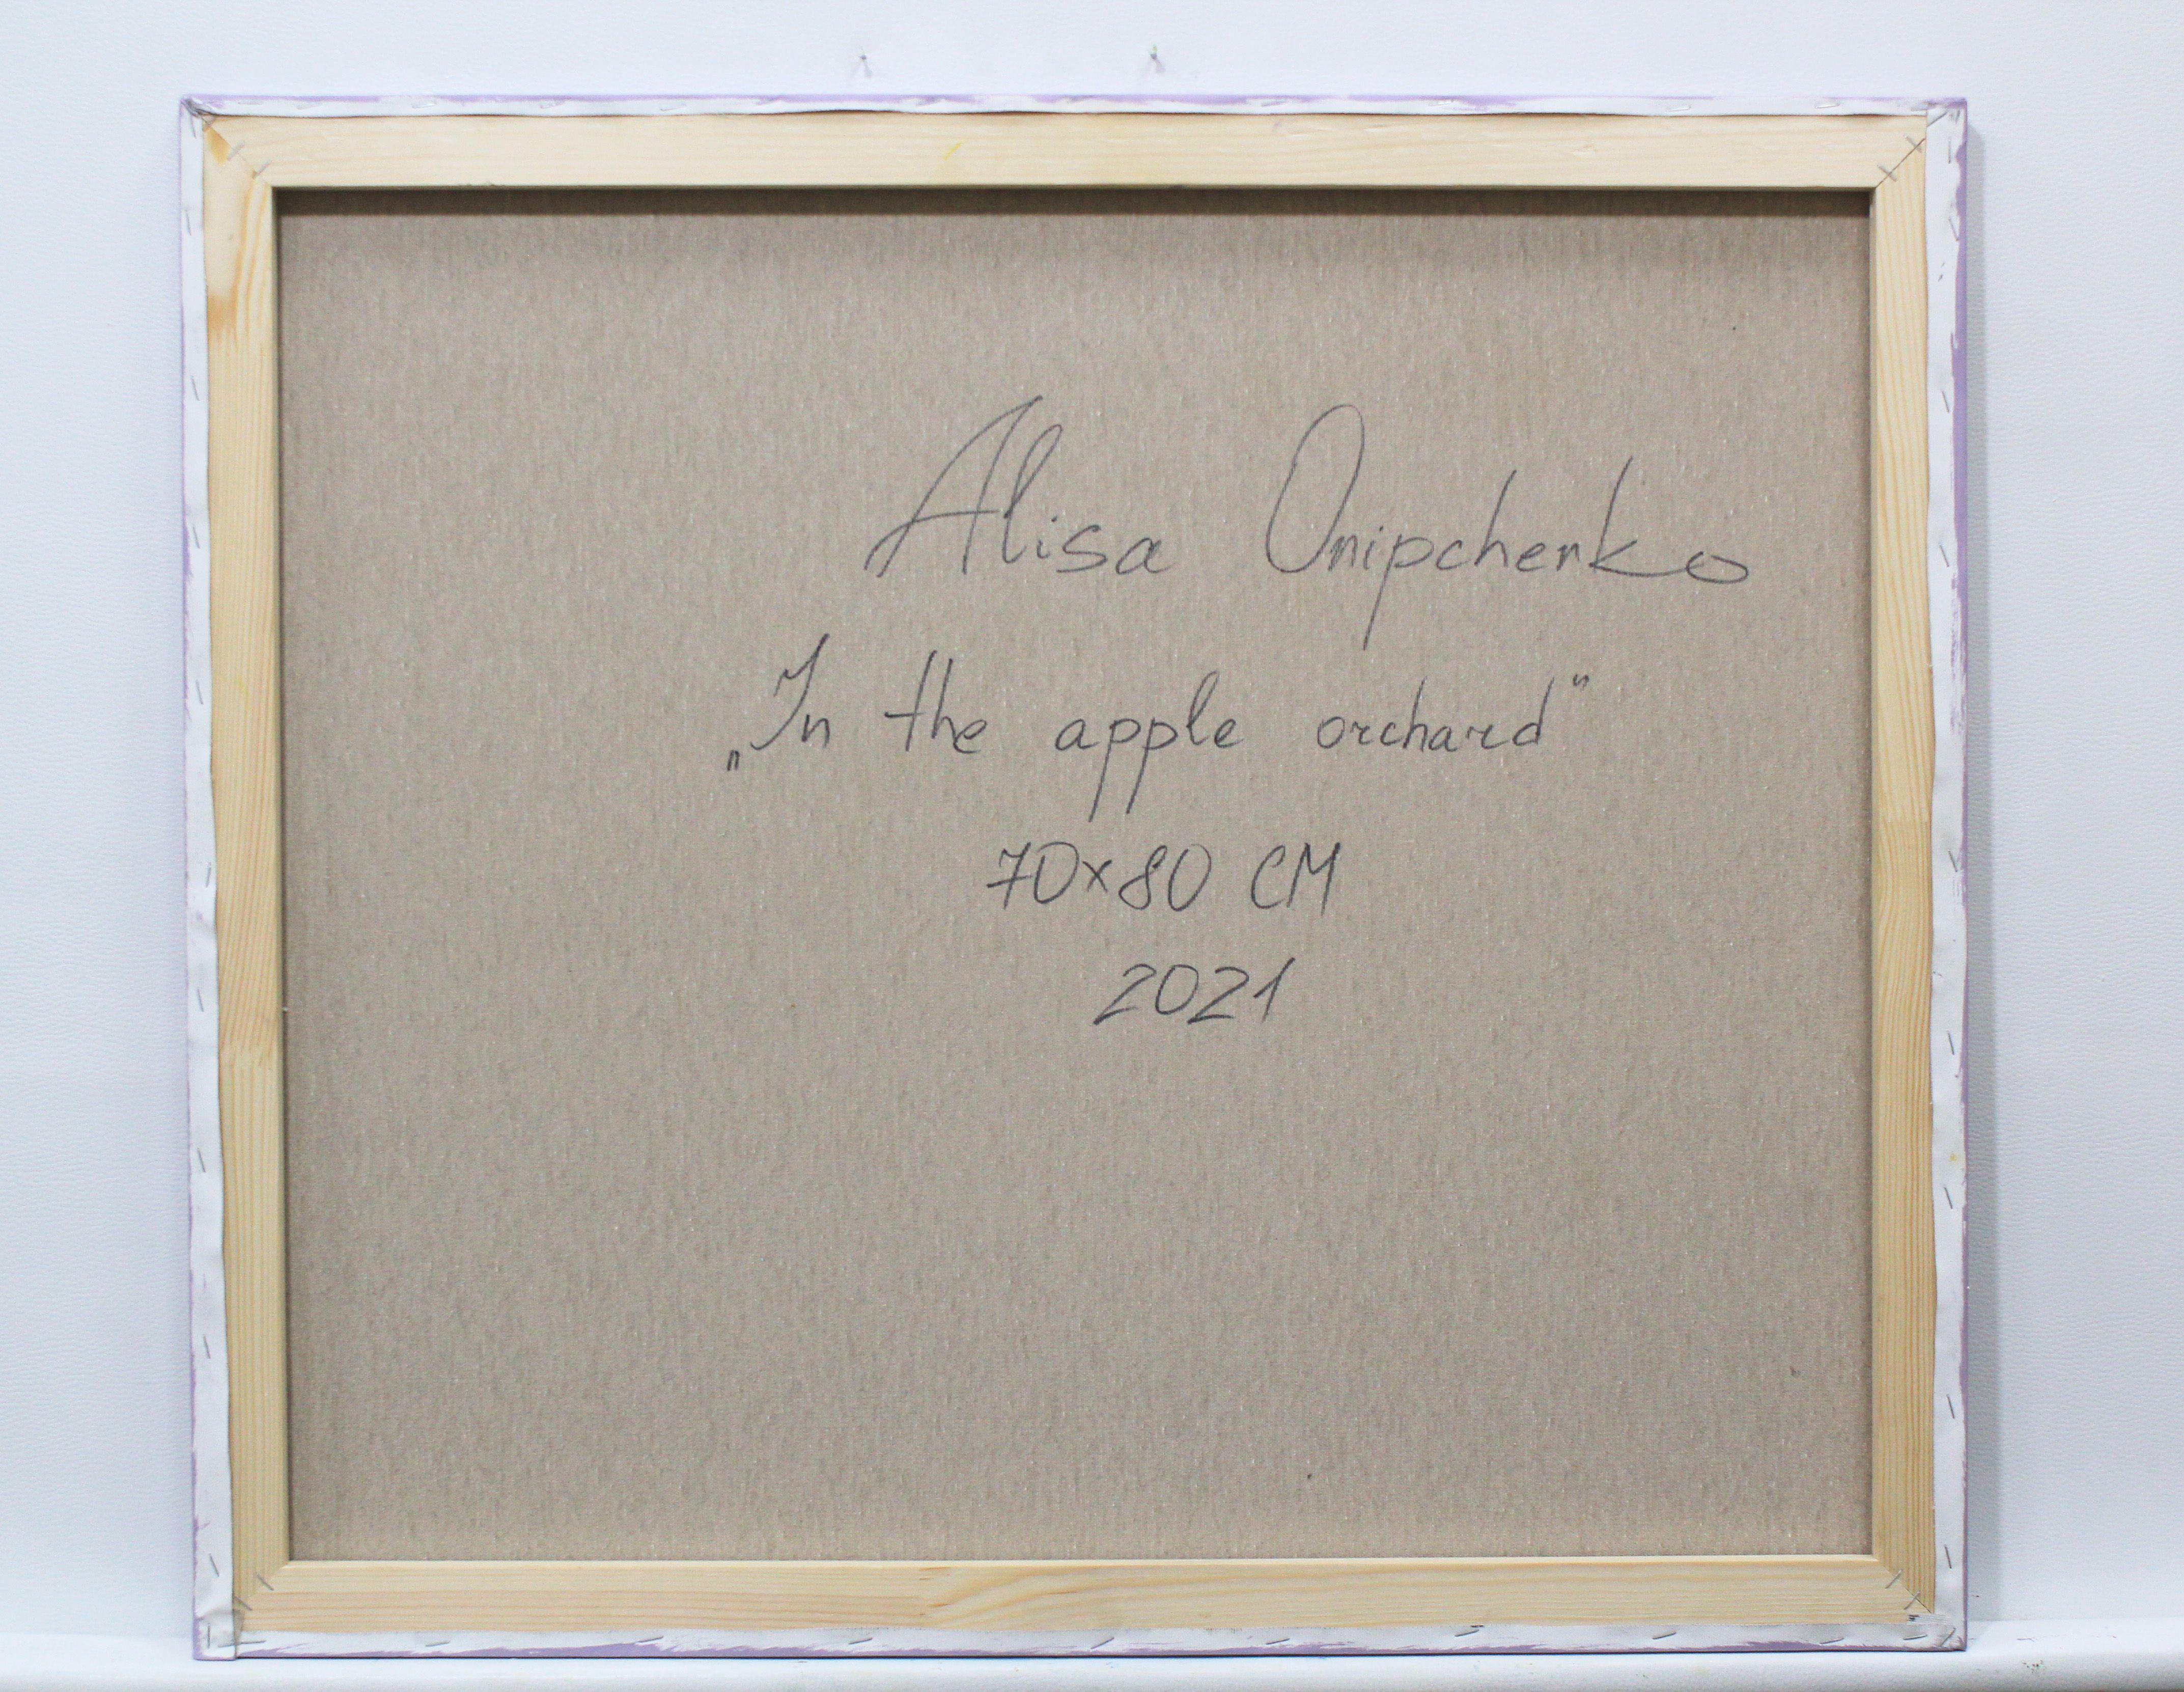 Alisa Onipchenko
„In the apple orchard"
70×80 CM
2021